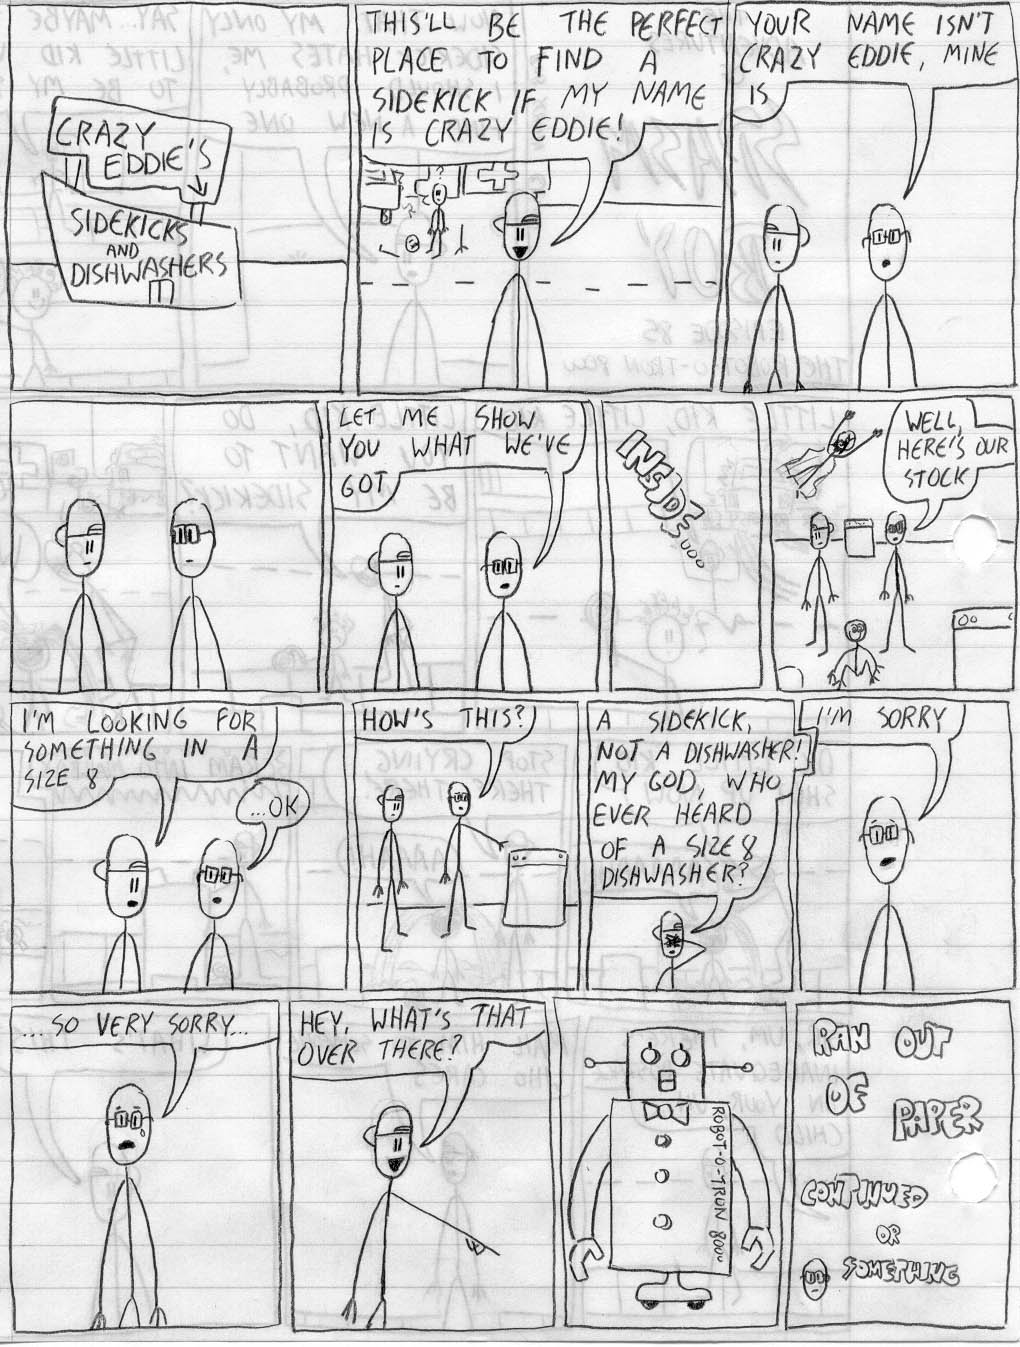 CRAZY
EDDIE'S
SIDEKICKS
AND
DISHWASHERS
THIS'LL BE THE PERFECT
PLACE TO FIND A
SIDEKICK IF MY NAME
IS CRAZY EDDIE!
?
YOUR NAME ISN'T
CRAZY EDDIE, MINE
IS
LET ME SHOW
YOU WHAT WE'VE
GOT
INSIDE...
WELL,
HERE'S OUR
STOCK
I'M LOOKING FOR
SOMETHING IN A
SIZE 8
...OK
HOW'S THIS?
A SIDEKICK,
NOT A DISHWASHER!
MY GOD, WHO
EVER HEARD
OF A SIZE 8
DISHWASHER?
I'M SORRY
...SO VERY SORRY...
HEY, WHAT'S THAT
OVER THERE?
ROBOT-O-TRON
RAN OUT
OF
PAPER
CONTINUED
OR
SOMETHING